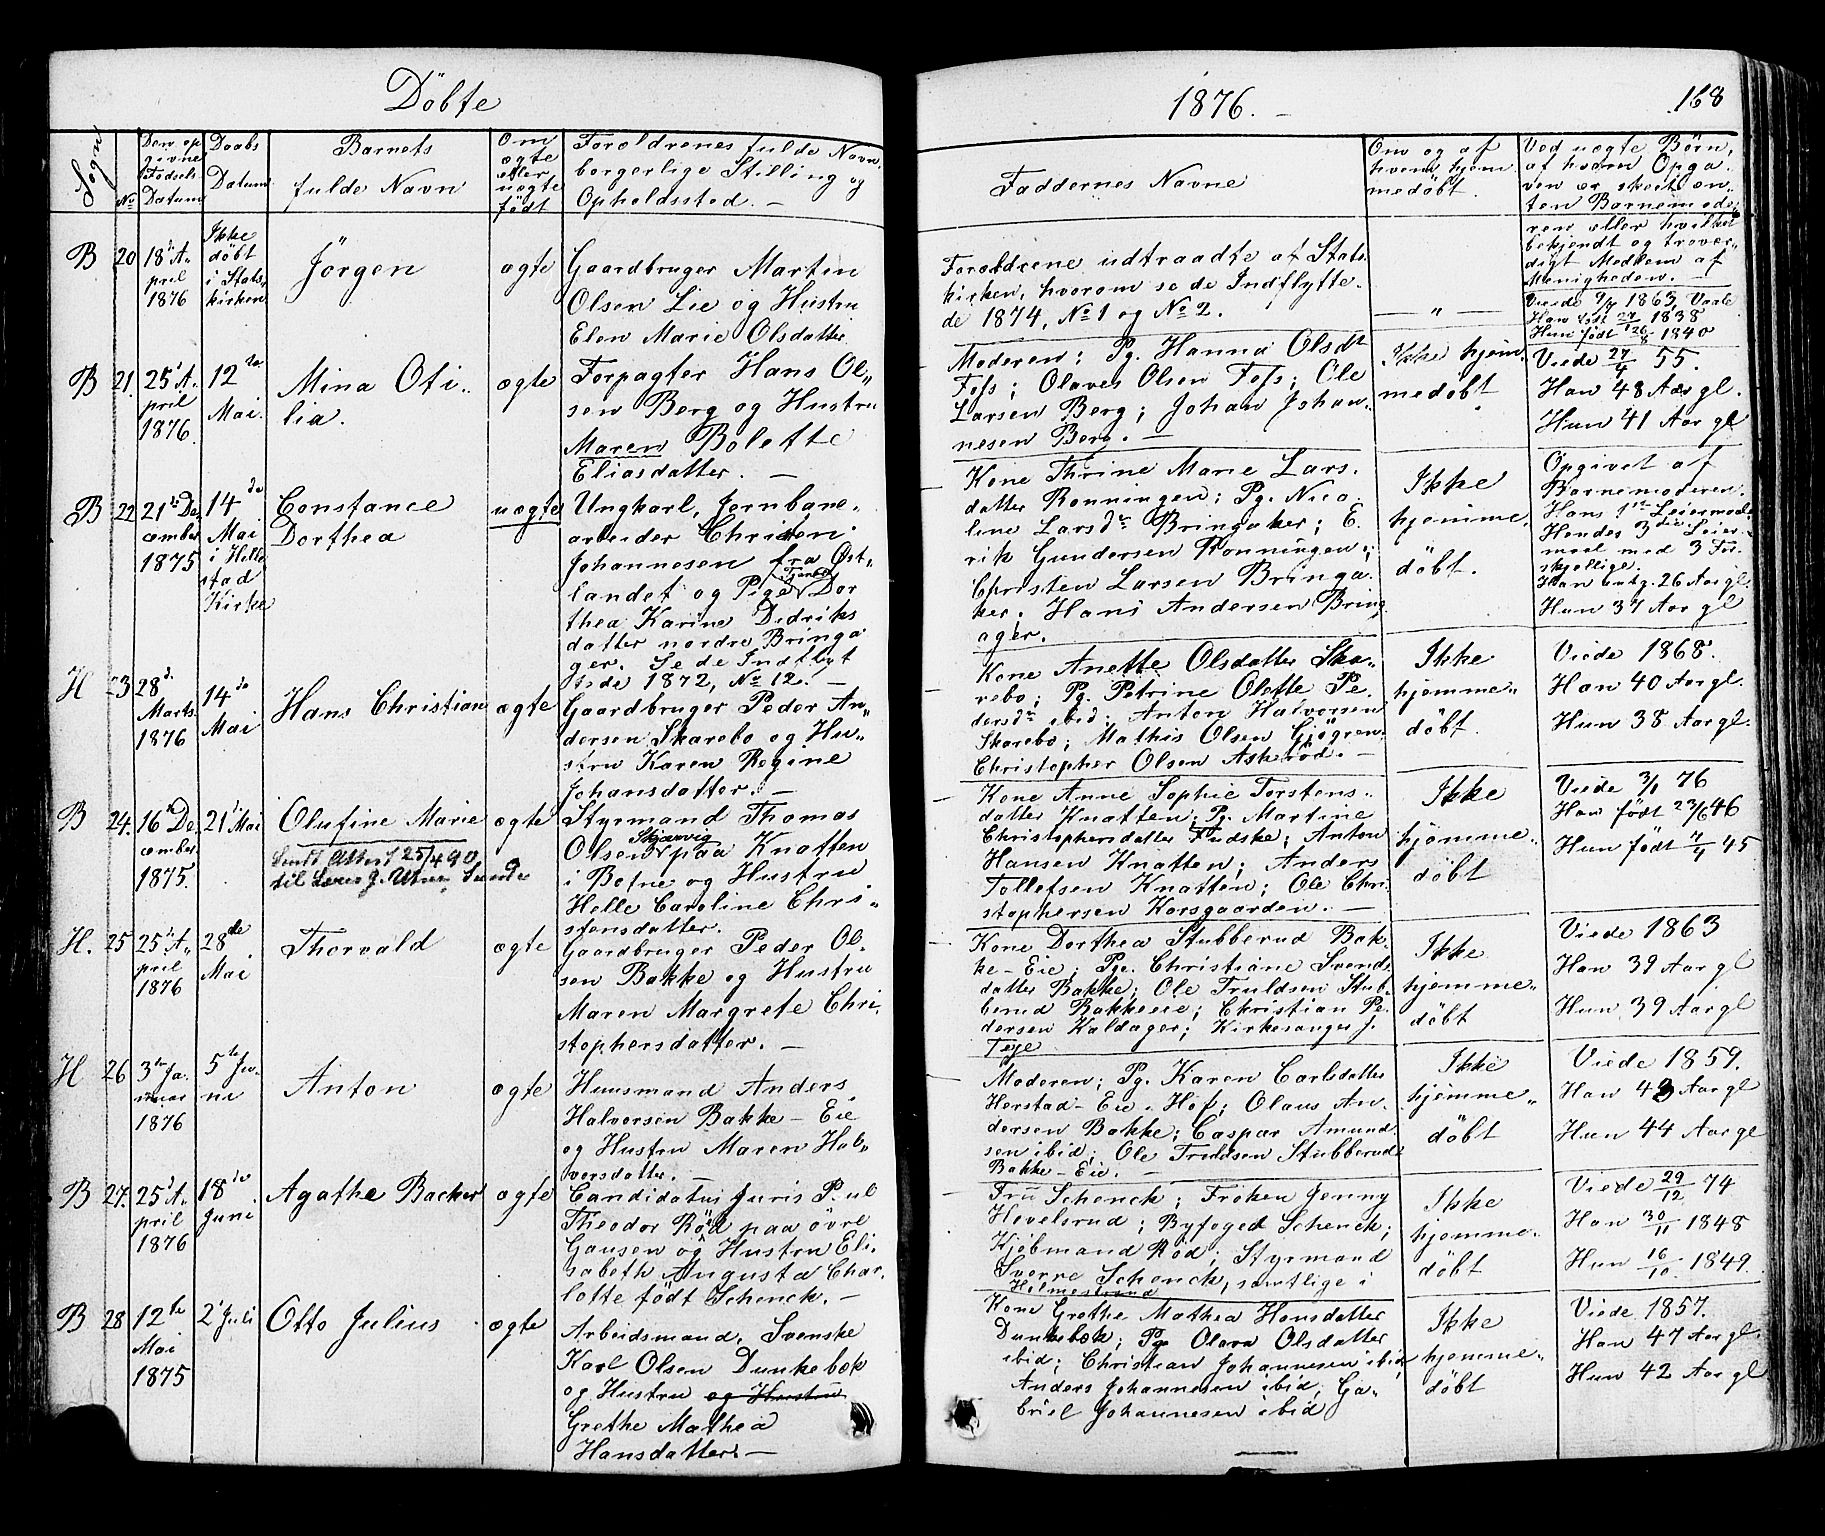 Döbte
1876.
168
Sogn
No
Den op
givne
Födsels
Datum
Daabs
Datum
Barnets
fulde Navn
Om
ægte
eller
uægte
født
Forældrenes fulde Navn,
borgerlige Stilling og
Opholdssted. —
Faddernes Navne
Om og af
hvem hjem
medøbt.
Ved uægte Börn,
af hvem Opga
ven er skeet en
ten Barnemode
ren eller hvilket
bekjendt og trover
digt Medlem af
Menigheden. —
B 20
18d A
pril
1876
Ikke
döbt
i Stats
kirken
Jörgen
ægte
Gaardbruger Martin
Olsen Lie og Hustru
Elen Marie Olsdatter
Forældrene udtraadte af Stats
kirken, hvorom se de Indflytte
de 1874, No 1 og No 2.
— „ —
Viede 9/7 1863, Vaale
Han født 27/1 1838
Hun født 26/8 1840
B 21.
25d A
pril
1876.
12te
Mai.
Mina Oti
lia.
ægte
Forpagter Hans Ol„
sen Berg og Hustru
Maren Bolette
Eliasdatter. —
Moderen; Pg. Hanna Olsdt
Foss; Olaves Olsen Foss; Ole
Larsen Berg; Johan Johan
nesen Berg. —
Ikke hjem
medøbt
Viede 27/4 55.
Han 48 Aar gl.
Hun 41 Aar gl
B 22
21de De
cember
1875
14de
Mai
i Hille
stad
Kirke
Constance
Dorthea
uægte
Ungkarl, Jernbane„
arbeider Christen
Johannesen fra Öst„
landet og Pige Dor
thea Karine Didriks
datter nordre Bringa
ger. Se de Indflyt
tede 1872, No 12. —
Kone Thrine Marie Lars
datter Ronningen; Pg. Nico
line Larsdr Bringaker; E
rik Gundersen Ronningen;
Christen Larsen Bringa
ker. Hans Andersen Bring
ager.
Ikke
hjemme„
döbt.
Opgivet af
Barnemoderen.
Hans 1ste Leiermaal
Hendes 3die Leier
maal med 3 For
skjellige.
Han 26 Aar gl
Hun 37 Aar gl
H 23
28d
Marts
1876
14de
Mai
Hans Christian
ægte
Gaardbruger Peder An„
dersen Skarebo og Hu„
stru Karen Regine
Johansdatter. —
Kone Anette Olsdatter Ska„
rebo; Pg. Petrine Olette Pe
dersdr ibid; Anton Halvorsen
Skarebo; Mathis Olsen Gjögren
Christopher Olsen Askeröd. —
Ikke
hjemme„
döbt.
Viede 1868.
Han 40 Aar gl.
Hun 38 Aar gl.
B 24.
16d De
cember
1875.
21d Mai
Olufine Marie
ægte
Styrmand Thomas
Olsen paa Knatten
i Botne og Hustru
Helle Caroline Chri„
stensdatter.
Kone Anne Sophie Torstens
datter Knatten; Pg. Martine
Christophersdatter Fudske; Anton
Hansen Knatten; Anders
Tollefsen Knatten; Ole Chri
stophersen Korsgaarden. —
Ikke
hjemme„
döbt
Viede 3/1 76
Han født 23/6 46
Hun født 7/4 45
H. 25
25d A„
pril
1876
28de
Mai
Thorvald
ægte
Gaardbruger Peder Ol
sen Bakke og Hustru
Maren Margrete Chri
stophersdatter. —
Kone Dorthea Stubberud Bak„
ke – Eie; Pge. Christiane Svends
datter Bakke; Ole Truldsen Stub„
berud Bakkeeie; Christian Pe
dersen Kaldager; Kirkesanger J.
Teje
Ikke
hjemme„
döbt
Viede 1863
Han 39 Aar gl
Hun 39 Aar gl
H 26
3die Ja
nuar
1876
5te Ju
ni
Anton
ægte
Huusmand Anders
Halvorsen Bakke – Eie
og Hustru Maren Hal„
vorsdatter. —
Moderen; Pg. Karen Carlsdatter
Herstad – Eie i Hof; Olaus An
dersen Bakke; Caspar Amund
sen ibid; Ole Truldsen Stubberud
Bakke – Eie. —
Ikke
hjemme„
döbt
Viede 1859.
Han 43 Aar gl
Hun 44 Aar gl
B 27.
25d A
pril
1876
18de
Juni
Agathe Backer
ægte
Candidatus Juris Paul
Theodor Röd paa övre
Gausen og Hustru Eli
sabeth Augusta Char
lotte født Schenck. —
Fru Schenck; Fröken Jenny
Hovelsrud; Byfoged Schenck;
Kjöbmand Röd; Styrmand
Sverre Schenck, samtlige i
Holmestrand
Ikke
hjemme„
döbt
Viede 29/12 74
Han 30/11 1848
Hun 16/10 1849.
B 28
12te
Mai
1875
2d Juli
Otto Julius
ægte
Arbeidsmand, Svenske
Karl Olsen Dunkebek
og Hustru og Hustru
Grethe Mathea
Hansdatter. —
Kone Grethe Mathea Hansdatter
Dunkebek; Pg. Olava Olsdatter
ibid; Christian Johannesen ibid
Anders Johannesen ibid; Ga
briel Johannesen ibid
Ikke
hjemme„
döbt
Viede 1857.
Han 47 Aar gl.
Hun 42 Aar gl